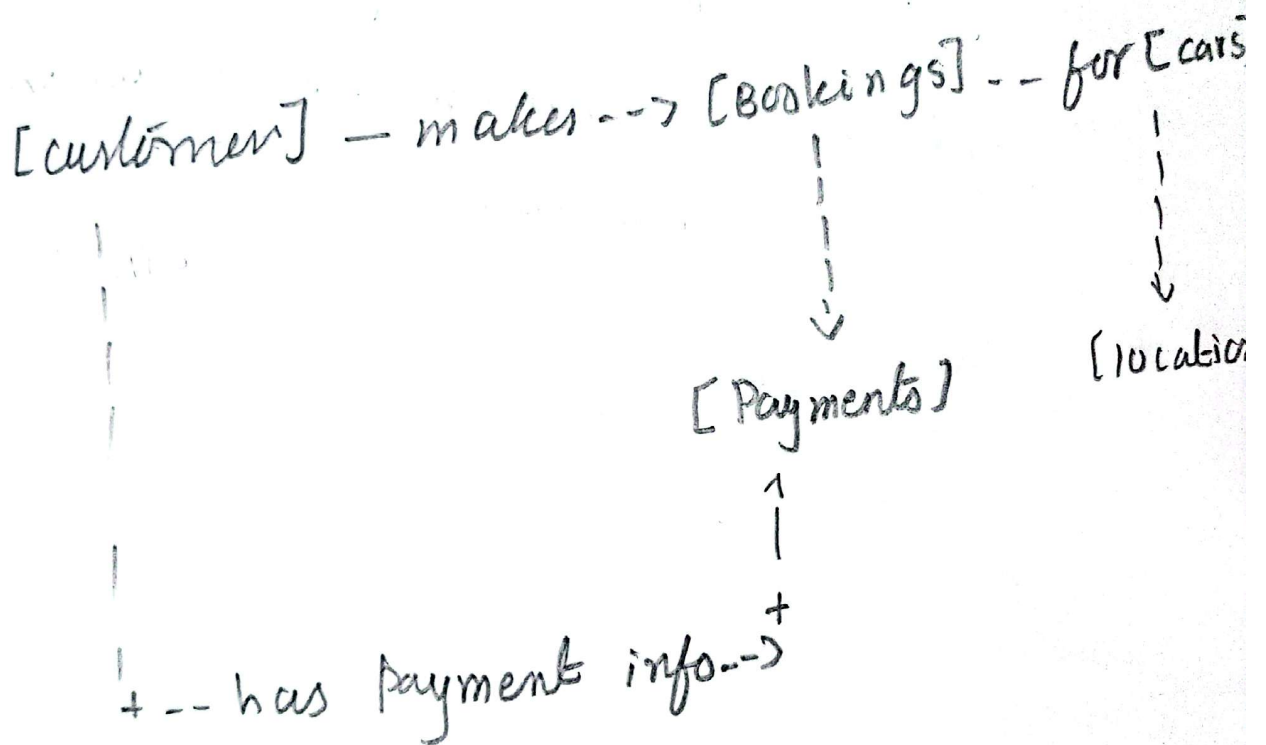 [customer] - makes --> [Bookings] -- for [cars
[Payments]
[locatio
+ -- has Payment info -->
+